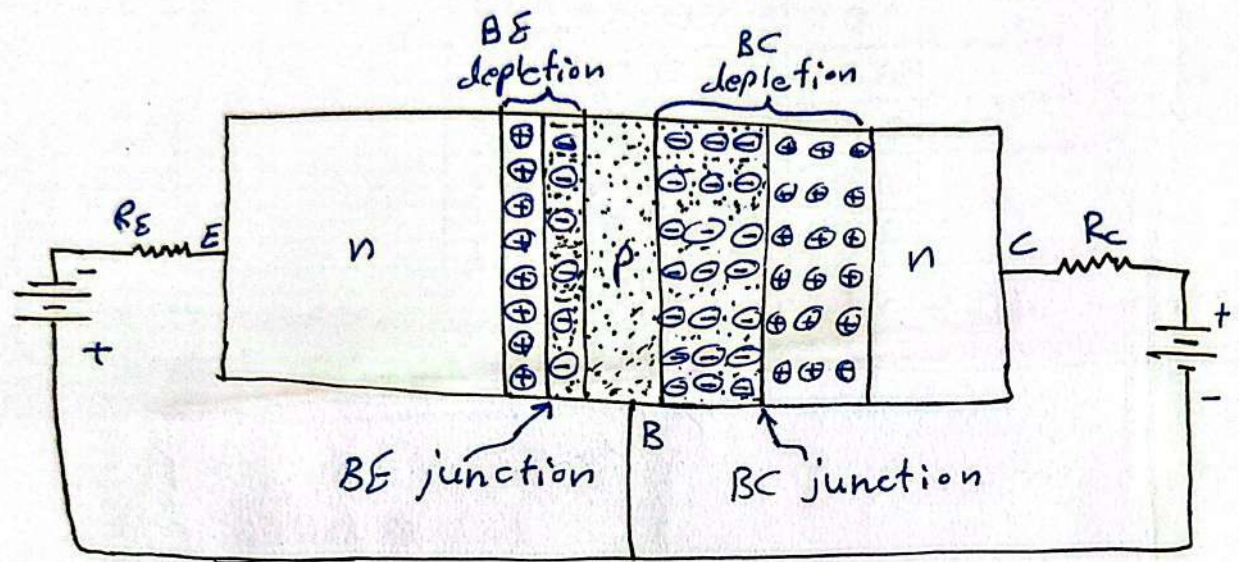 BE
depletion
BC
depletion
RE
E
n
p
n
C
RC
-
+
+
-
B
BE junction
BC junction